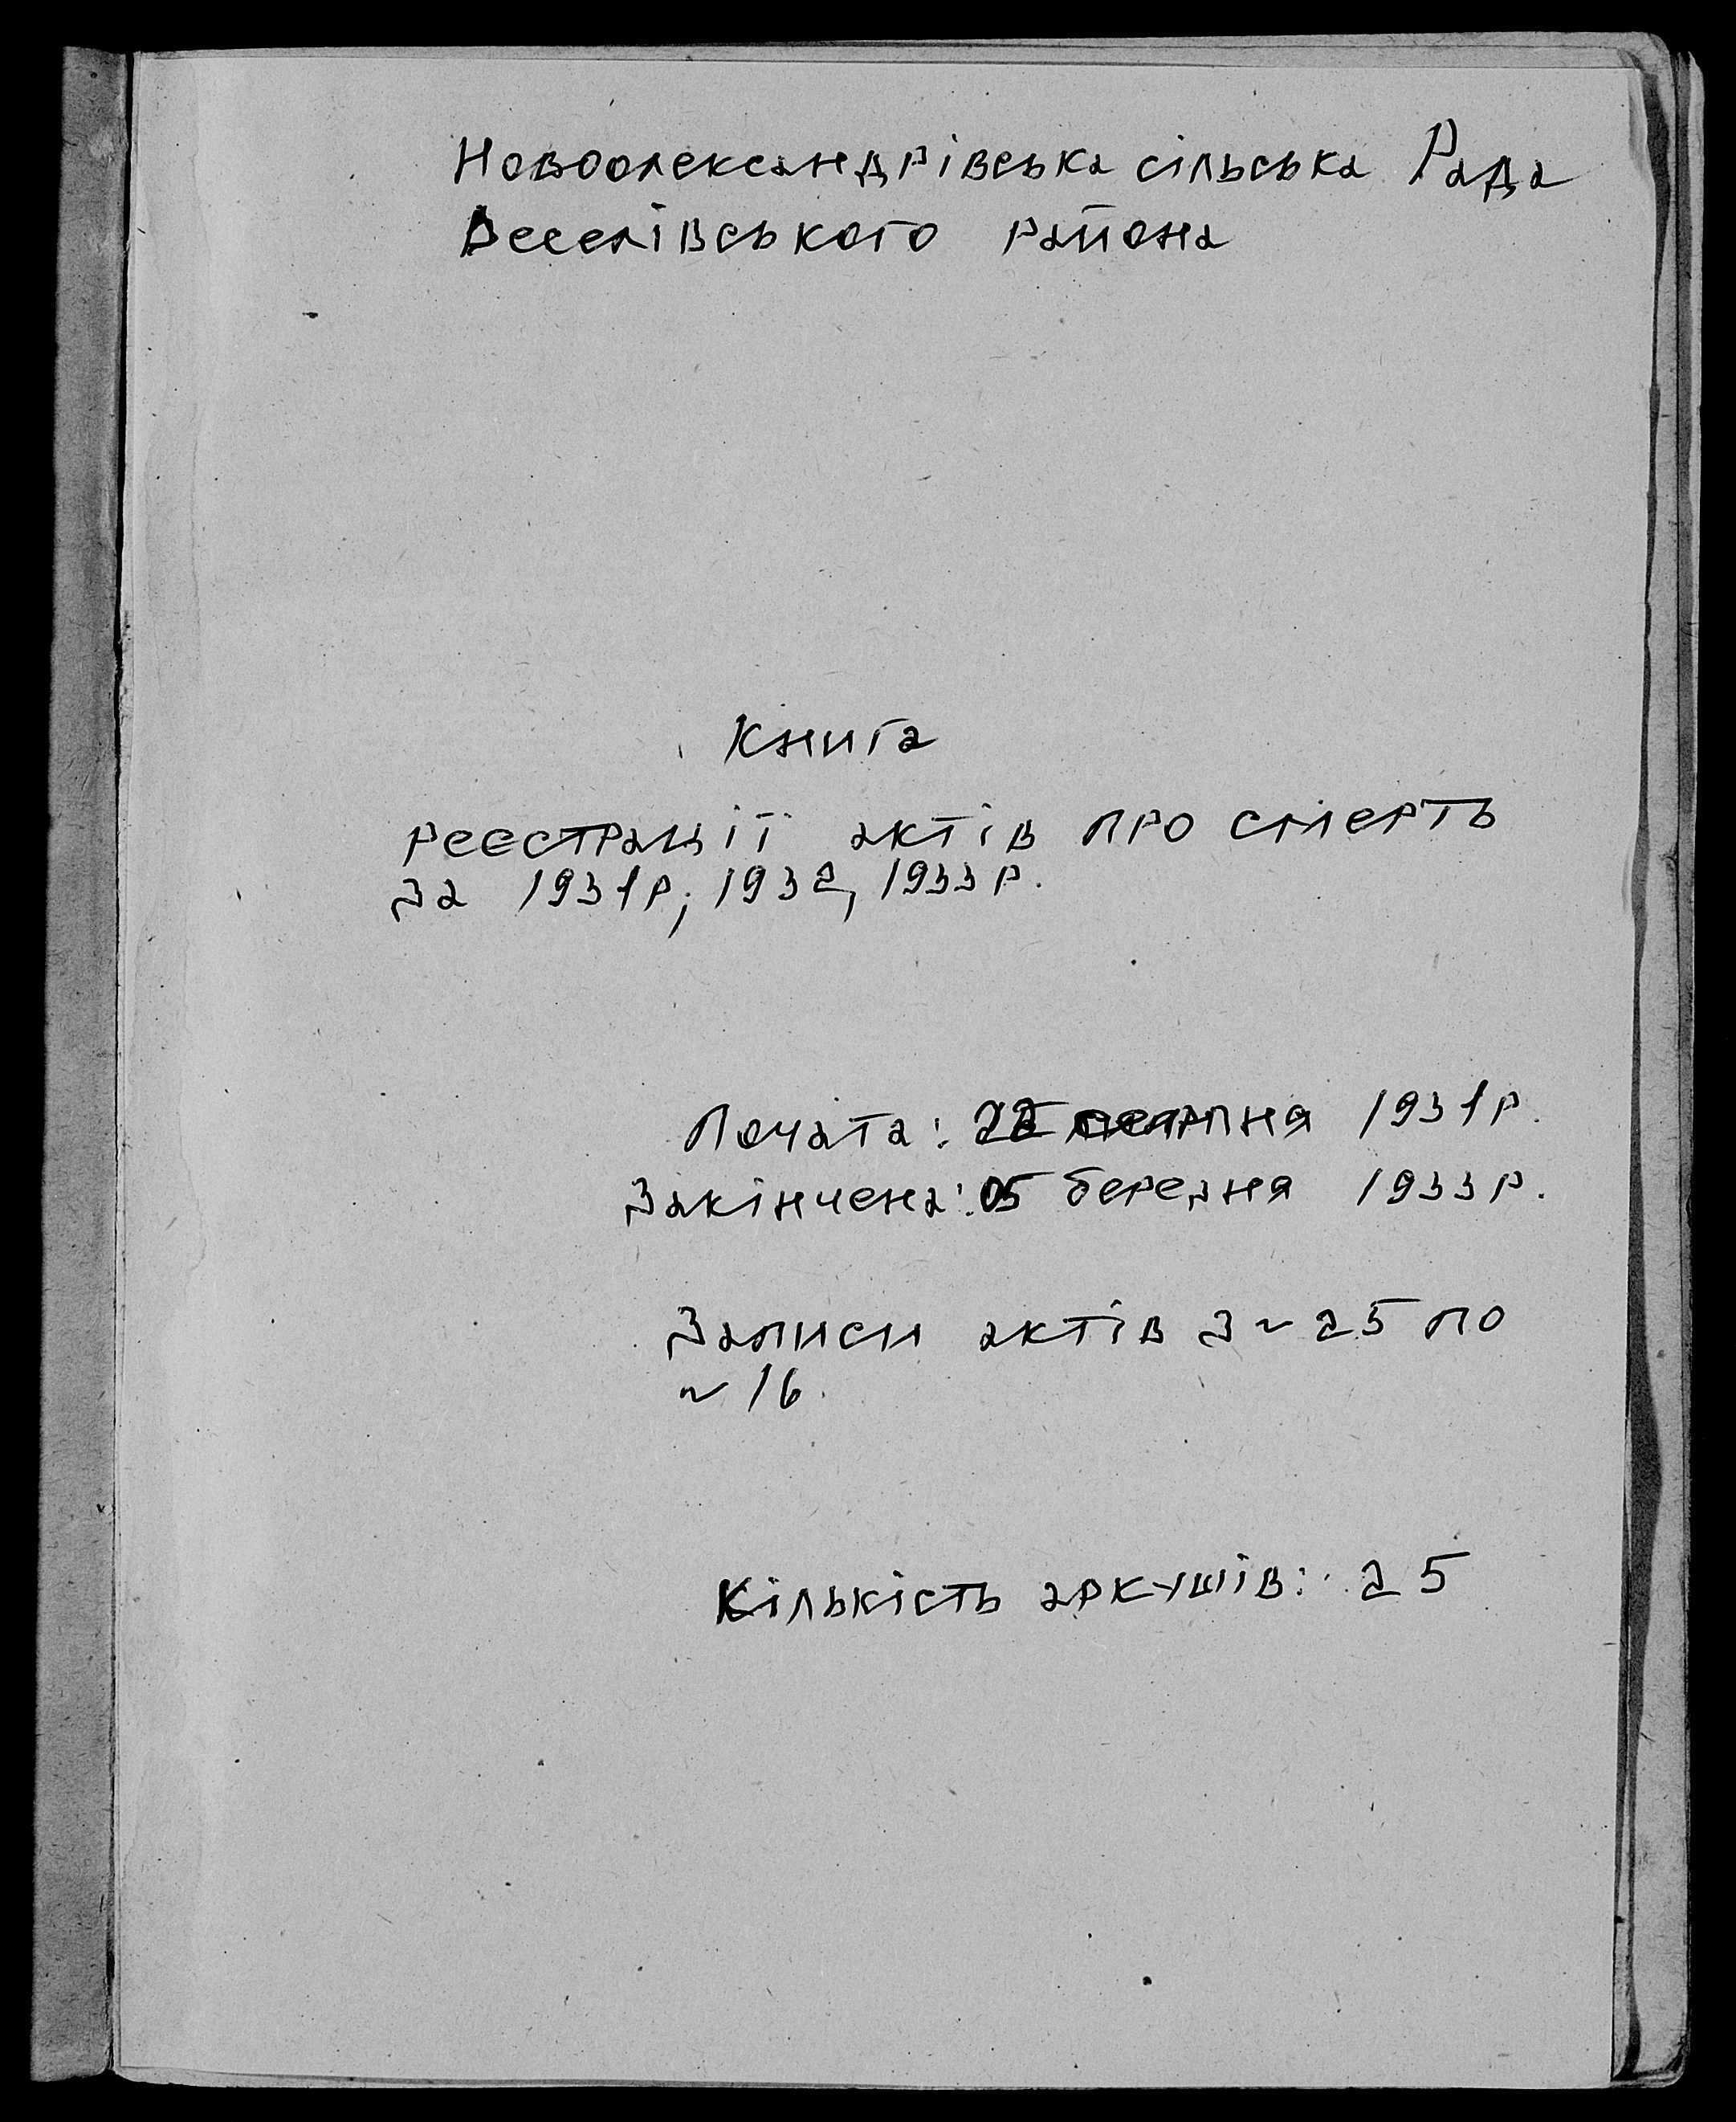 Новоолександрівська сільська Рада
Веселівського района
Книга
реєстрації актів про смерть
за 1931р; 1932, 1933р.
Почата: 22 серпня 1931р.
Закінчена: 05 березня 1933р.
Записи актів з ~ 25 по
~ 16.
Кількість аркушів: 25